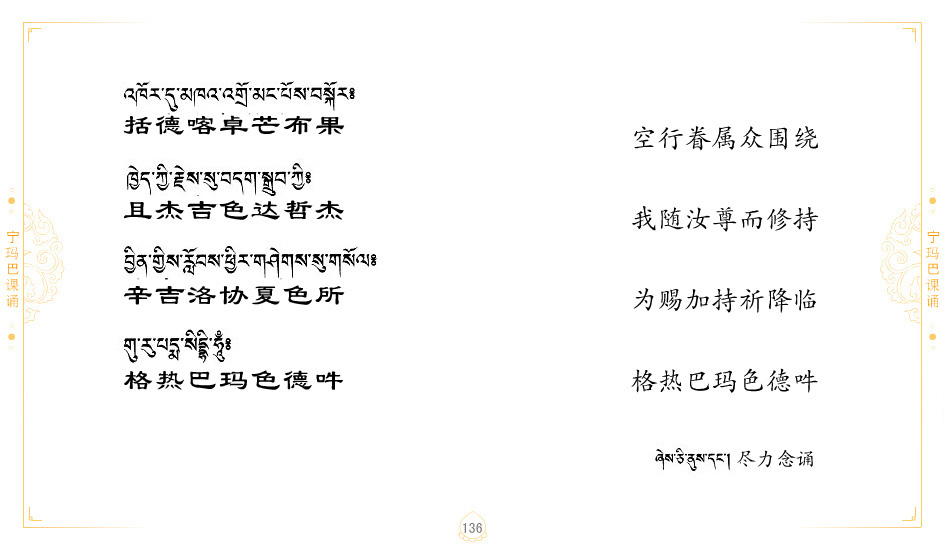 འཁོར་དུ་མཁའ་འགྲོ་མང་པོས་བསྐོར༔
括德喀卓芒布果
空行眷属众围绕
ཁྱེད་ཀྱི་རྗེས་སུ་བདག་སྒྲུབ་ཀྱི༔
且杰吉色达哲杰
我随汝尊而修持
བྱིན་གྱིས་རློབས་ཕྱིར་གཤེགས་སུ་གསོལ༔
辛吉洛协夏色所
为赐加持祈降临
གུ་རུ་པདྨ་སིདྡྷི་ཧཱུྃ༔
格热巴玛色德吽
格热巴玛色德吽
ཞེས་ཅི་ནུས་དང་། 尽力念诵
宁玛巴课诵
宁玛巴课诵
136